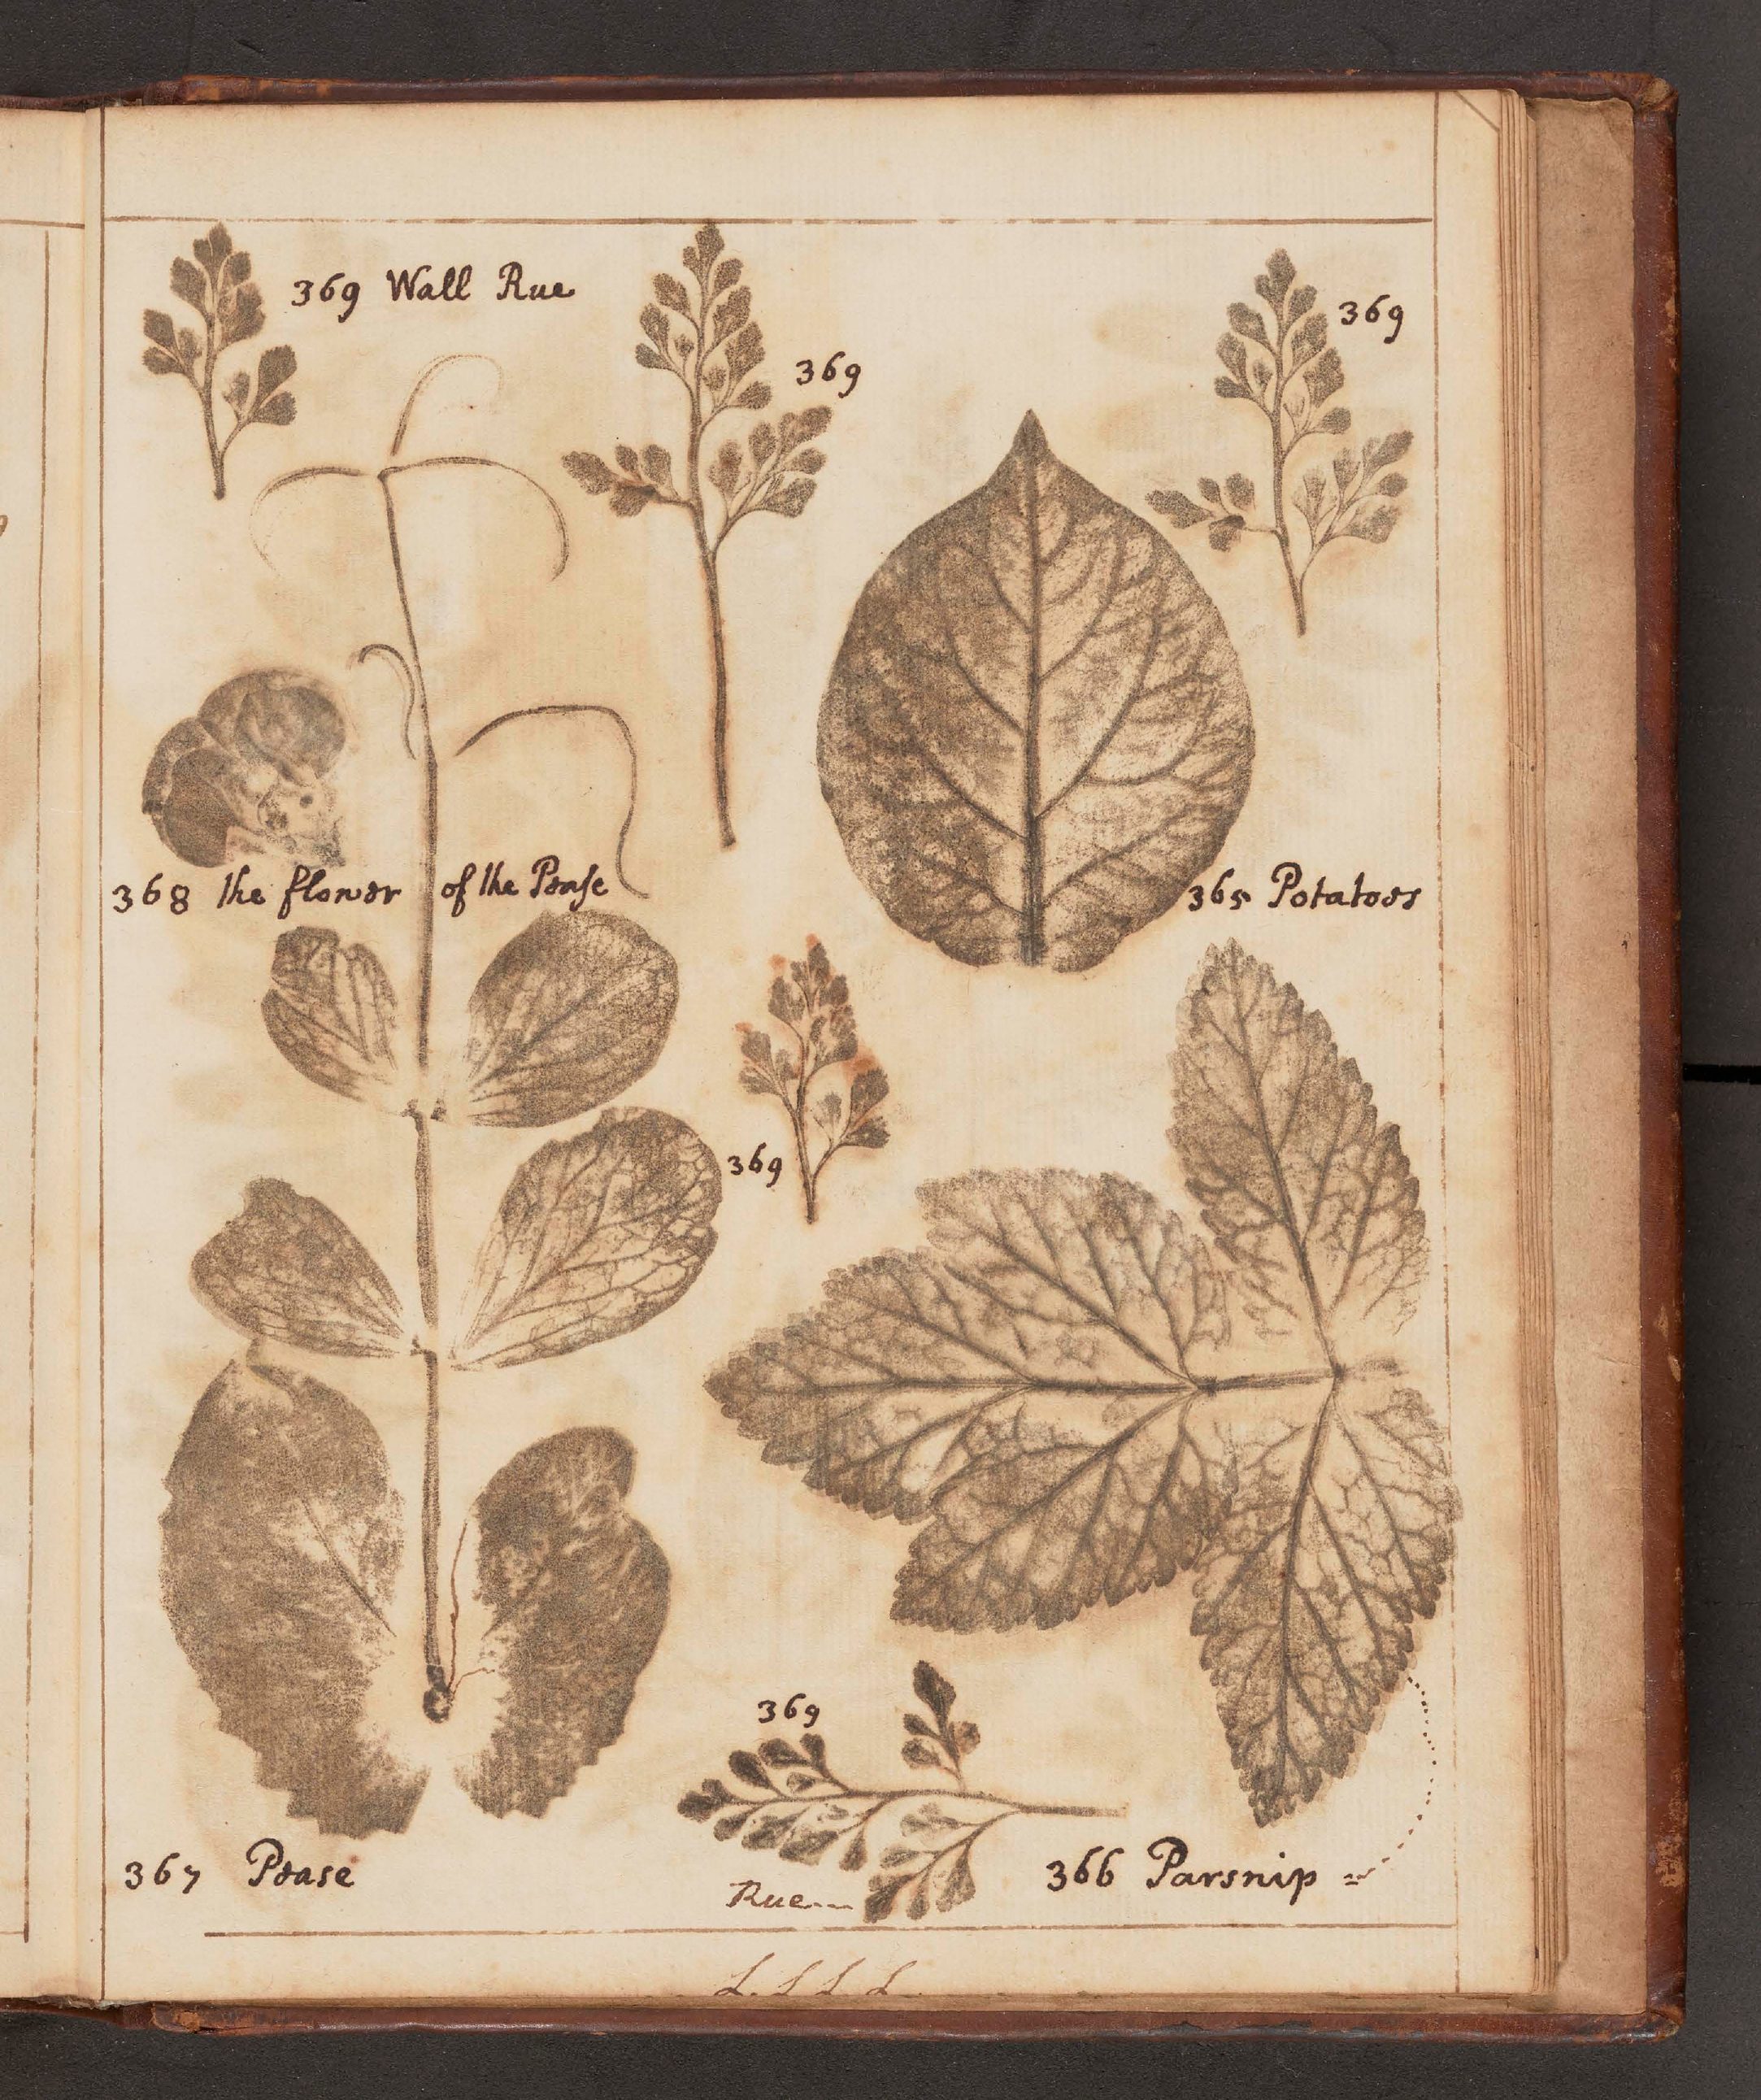 369 Wall Rue
369
369
368 the flower of the Pease
365 Potatoes
369
369
367 Pease
Rue
366 Parsnip